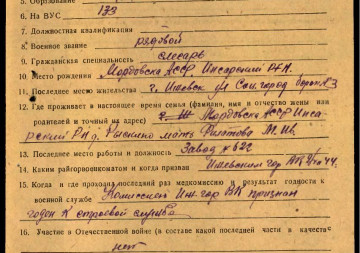 5. Образование
6. На ВУС 133
7. Должностная квалификация
8. Военное звание рядовой
9. Гражданская специальность слесарь
10. Место рождения Мордовск АССР Инсарский р-н.
11. Последнее место жительства г. Ижевск ул Соц.город барак №3
12. Где проживает в настоящее время семья (фамилия, имя и отчество жены или
родителей и точный их адрес) Мордовск АССР Инса-
рский Р-н д. мать М. Ив.
13. Последнее место работы и должность Завод № 622
14. Каким райгорвоенкоматом и когда призван Ижевским гор 44
15. Когда и где проходил последний раз медкомиссию результат годности к
военной службе Комиссией Иж.гор ВК признан
годен к строевой службе
16. Участие в Отечественной войне (в составе какой последней части в качестве
нет